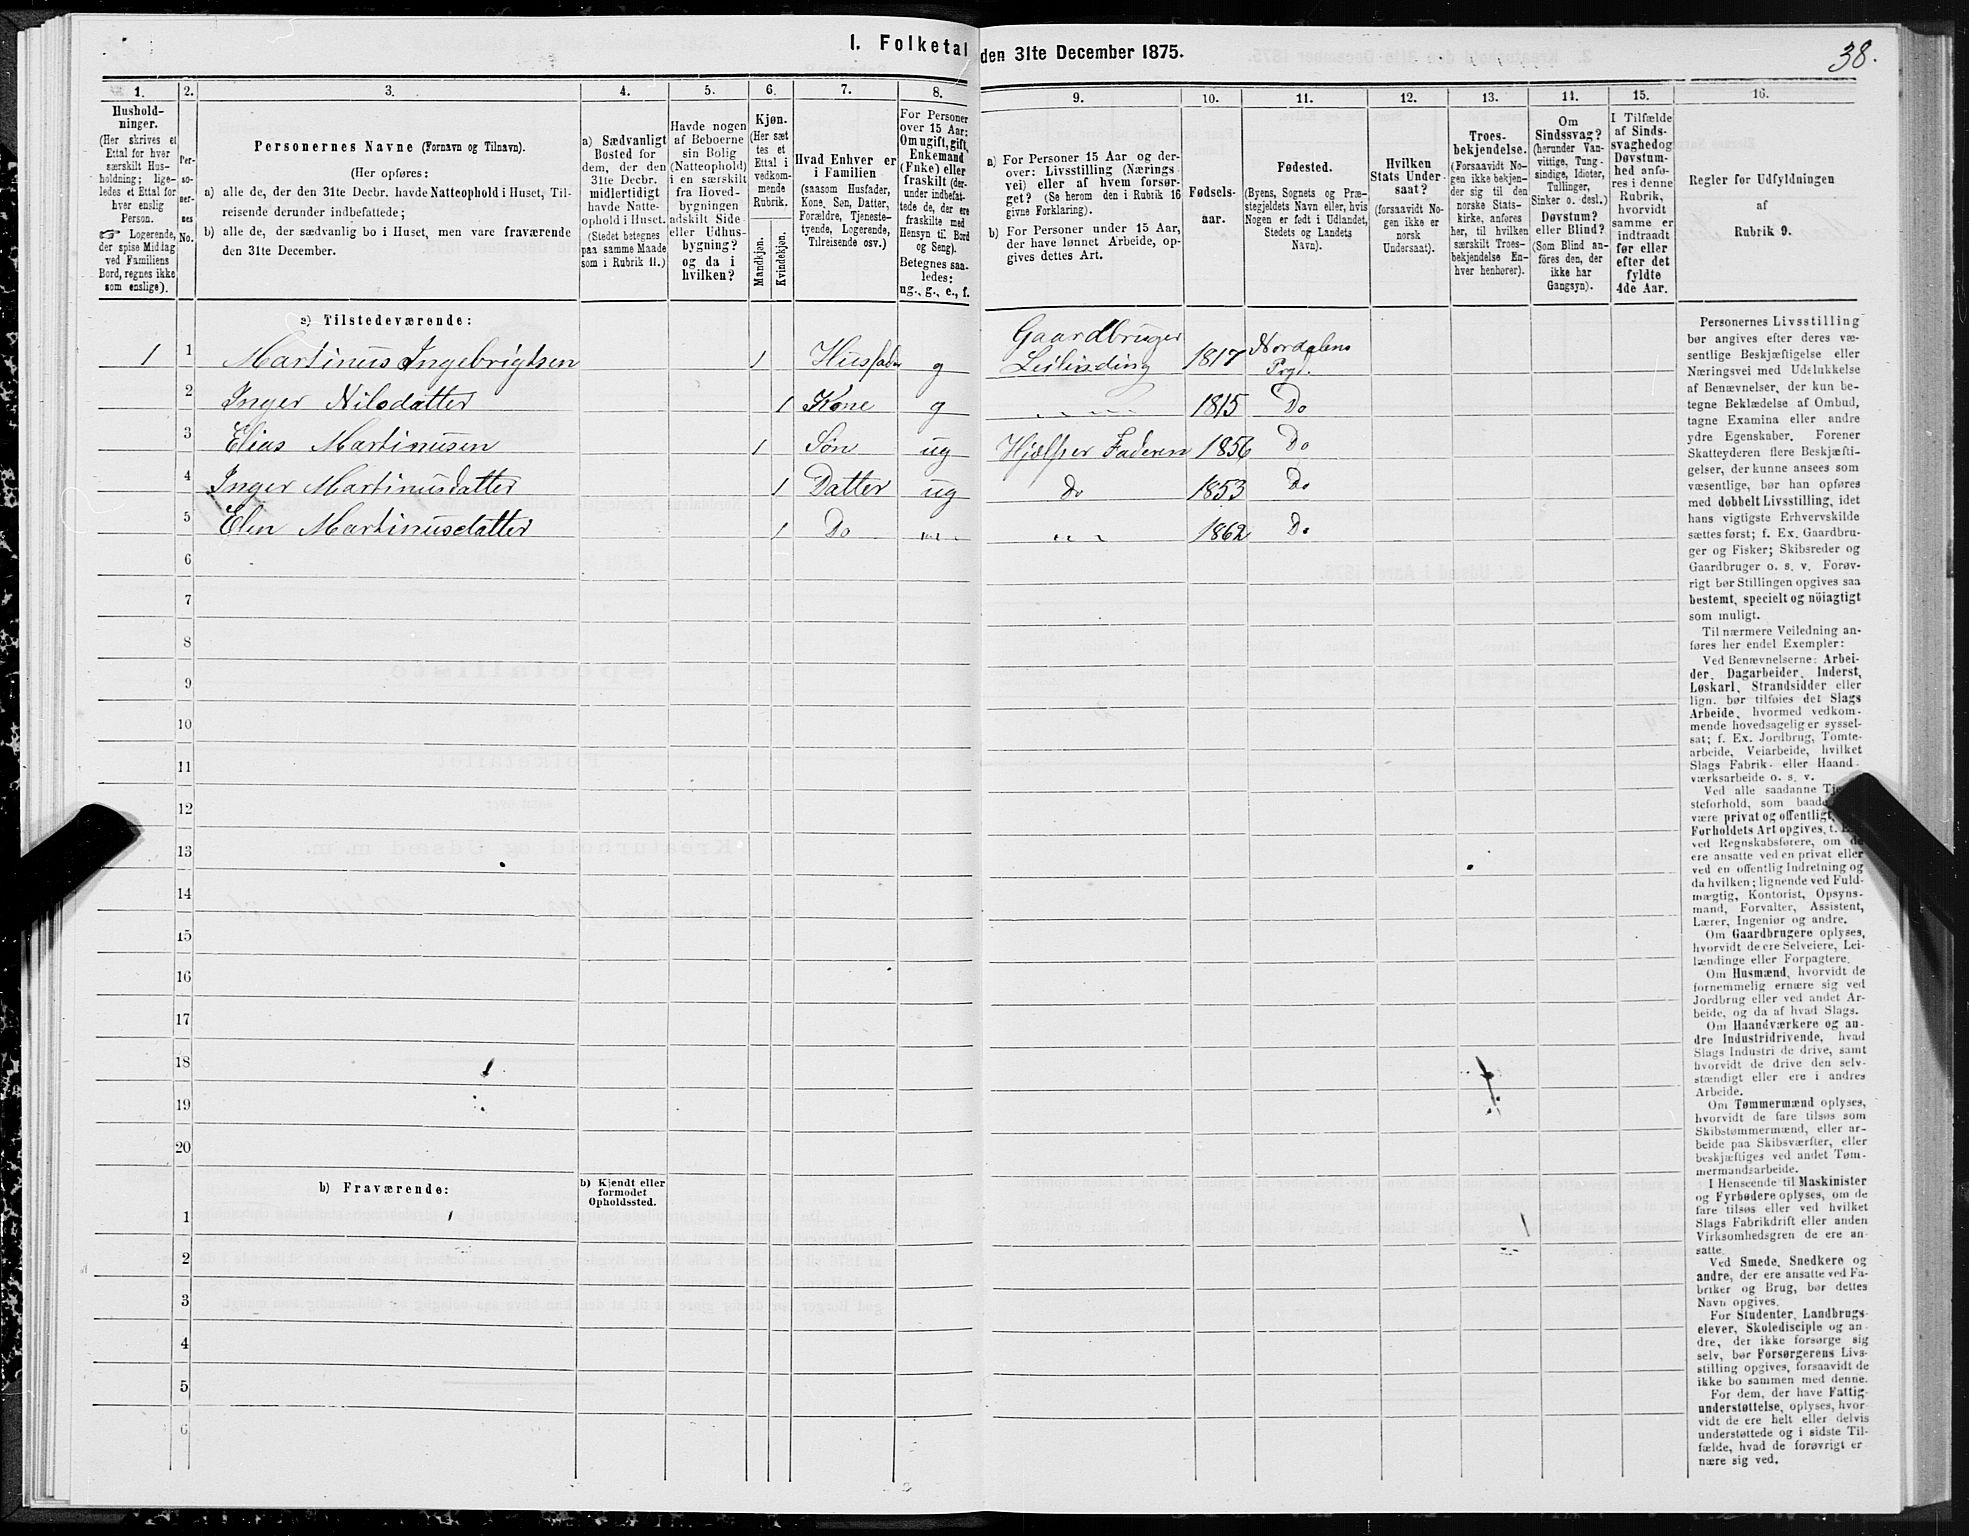 1. Folketal den 31te December 1875.
38.
1.
2.
3.
4.
5.
6.
7.
8.
9.
10.
11.
12.
13.
14.
15.
16.
Hushold-
ninger.
(Her skrives et
Ettal for hver
særskilt Hus-
holdning; lige-
ledes et Ettal for
hver enslig
Person.
☞ Logerende,
der spise Middag
ved Familiens
Bord, regnes ikke
som enslige).
Per-
so-
ner-
nes
No.
Personernes Navne (Fornavn og Tilnavn).
(Her opføres:
a) alle de, der den 31te Decbr. havde Natteophold i Huset, Til-
reisende derunder indbefattede;
b) alle de, der sædvanlig bo i Huset, men vare fraværende
den 31te December.
a) Sædvanligt
Bosted for
dem, der den
31te Decbr.
midlertidigt
havde Natte-
ophold i Huset.
(Stedet betegnes
paa samme Maade
som i Rubrik 11.)
Havde nogen
af Beboerne
sin Bolig
(Natteophold)
i en særskilt
fra Hoved-
bygningen
adskilt Side-
eller Udhus-
bygning?
og da i
hvilken?
Kjøn.
(Her sæt-
tes et
Ettal i
vedkom-
mende
Rubrik.
Mandkjøn.
Kvindekjøn.
Hvad Enhver er
i Familien
(saasom Husfader,
Kone, Søn, Datter,
Forældre, Tjeneste-
tyende, Logerende,
Tilreisende osv.)
For Personer
over 15 Aar:
Om ugift, gift,
Enkemand
(Enke) eller
fraskilt (der-
under indbefat-
tede de, der ere
fraskilte med
Hensyn til Bord
og Seng).
Betegnes saa-
ledes:
ug., g., e., f.
a) For Personer 15 Aar og der-
over: Livsstilling (Nærings-
vei) eller af hvem forsør-
get? (Se herom den i Rubrik 16
givne Forklaring).
b) For Personer under 15 Aar,
der have lønnet Arbeide, op-
gives dettes Art.
Fødsels-
aar.
Fødested.
(Byens, Sognets og Præ-
stegjeldets Navn eller, hvis
Nogen er født i Udlandet,
Stedets og Landets
Navn).
Hvilken
Stats Under-
saat?
(forsaavidt No-
gen ikke er
norsk
Undersaat).
Troes-
bekjendelse.
(Forsaavidt No-
gen ikke bekjen-
der sig til den
norske Stats-
kirke, anføres
her, til hvilken
særskilt Troes-
bekjendelse En-
hver henhører).
Om
Sindssvag?
(herunder Van-
vittige, Tung-
sindige, Idioter,
Tullinger,
Sinker o. desl.)
Døvstum?
eller Blind?
(Som Blind an-
føres den, der
ikke har
Gangsyn).
I Tilfælde
af Sinds-
svaghed og
Døvstum-
hed anfø-
res i denne
Rubrik,
hvorvidt
samme er
indtraadt
før eller
efter det
fyldte
4de Aar.
Regler for Udfyldningen
af
Rubrik 9.
a) Tilstedeværende:
1 1 Martinus Ingebrigtsen 1 Husfader g Gaardbruger Leilinding 1817 Nordalens Prgd.
2 Inger Nilsdatter 1 Kone g „ „ 1815 Do
3 Elias Martinusen 1 Søn ug Hjælper Faderen 1856 Do
4 Inger Martinusdatter 1 Datter ug do 1853 Do
5 Elen Martinusdatter 1 Do „ „ „ „ 1862 Do
6
7
8
9
10
11
12
13
14
15
16
17
18
19
20
b) Fraværende:
b) Kjendt eller
formodet
Opholdssted.
1
2
3
4
5
6
Personernes Livsstilling
bør angives efter deres væ-
sentlige Beskjæftigelse eller
Næringsvei med Udelukkelse
af Benævnelser, der kun be-
tegne Beklædelse af Ombud,
tagne Examina eller andre
ydre Egenskaber. Forener
Skatteyderen flere Beskjæfti-
gelser, der kunne ansees som
væsentlige, bør han opføres
med dobbelt Livsstilling, idet
hans vigtigste Erhvervskilde
sættes først; f. Ex. Gaardbru-
ger og Fisker; Skibsreder og
Gaardbruger o. s. v. Forøv-
rigt bør Stillingen opgives saa
bestemt, specielt og nöiagtigt
som muligt.
Til nærmere Veiledning an-
føres her endel Exempler:
Ved Benævnelserne: Arbei-
der, Dagarbeider, Inderst,
Løskarl, Strandsidder eller
lign. bør tilføies det Slags
Arbeide, hvormed vedkom-
mende hovedsagelig er syssel-
sat; f. Ex. Jordbrug, Tomte-
arbeide, Veiarbeide, hvilket
Slags Fabrik- eller Haand-
værksarbeide o. s. v.
Ved alle saadanne
steforhold, som
være privat og offentligt,
Forholdets Art opgives, t.
ved Regnskabsførere, om de
ere ansatte ved en privat eller
ved en offentlig Indretning og
da hvilken; lignende ved Fuld-
mægtig, Kontorist, Opsyns-
mand, Forvalter, Assistent,
Lærer, Ingeniør og andre.
Om Gaardbrugere oplyses,
hvorvidt de ere Selveiere, Lei-
lændinge eller Forpagtere.
Om Husmænd, hvorvidt de
fornemmelig ernære sig ved
Jordbrug eller ved andet Ar-
beide, og da af hvad Slags.
Om Haandværkere og an-
dre Industridrivende, hvad
Slags Industri de drive, samt
hvorvidt de drive den selv-
stændigt eller ere i andres
Arbeide.
Om Tømmermænd oplyses,
hvorvidt de fare tilsøs som
Skibstømmermænd, eller ar-
beide paa Skibsværfter, eller
beskjæftiges ved andet Tøm-
mermandsarbeide.
I Henseende til Maskinister
og Fyrbødere oplyses, om de
fare tilsøs eller ved hvilket
Slags Fabrikdrift eller anden
Virksomhedsgren de ere an-
satte.
Ved Smede, Snedkere og
andre, der ere ansatte ved Fa-
briker og Brug, bør dettes
Navn opgives.
For Studenter, Landbrugs-
elever, Skoledisciple og an-
dre, der ikke forsørge sig
selv, bør Forsørgerens Livs-
stilling opgives, forsaavidt de
ikke bo sammen med denne.
For dem, der have Fattig-
understøttelse, oplyses, hvor-
vidt de ere helt eller delvis
understøttede og i sidste Til-
fælde, hvad de forøvrigt er-
nære sig ved.